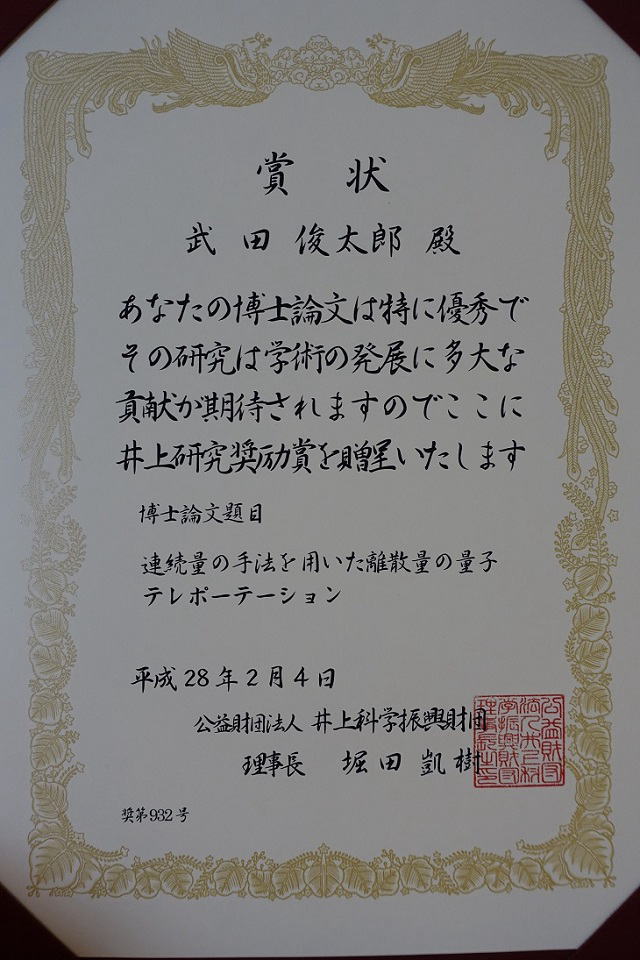 賞状
武田俊太郎 殿
あなたの博士論文は特に優秀で
その研究は学術の発展に多大な
貢献が期待されますのでここに
井上研究奨励賞を贈呈いたします
博士論文題目
連続量の手法を用いた離散量の量子
テレポーテーション
平成28年2月4日
公益財団法人 井上科学振興財団
理事長 堀田凱樹
奨第932号